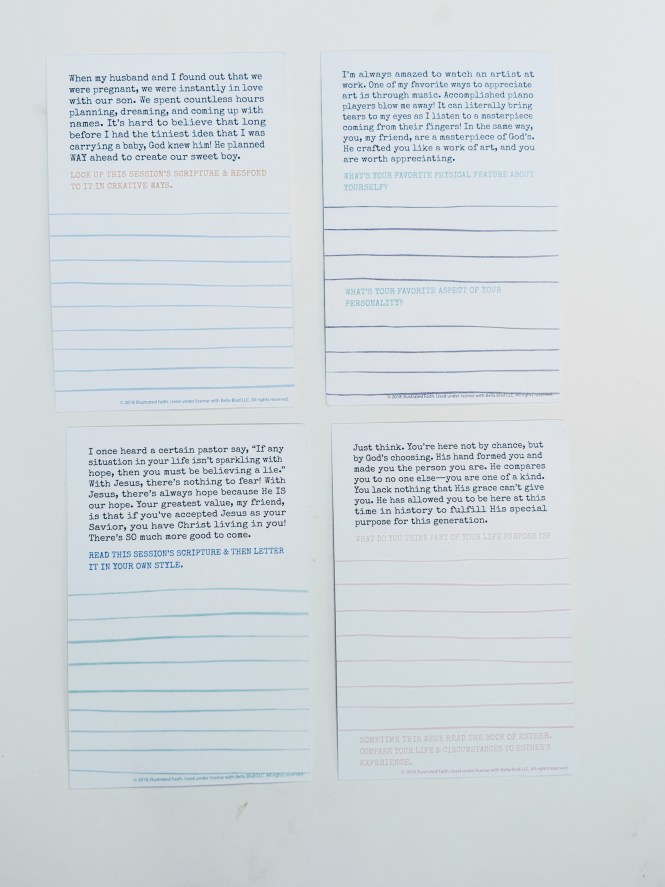 When my husband and I found out that we
were pregnant, we were instantly in love
with our son. We spent countless hours
planning, dreaming, and coming up with
names. It's hard to believe that long
before I had the tiniest idea that I was
carrying a baby, God knew him! He planned
WAY ahead to create our sweet boy.
LOOK UP THIS SESSION'S SCRIPTURE & RESPOND
TO IT IN CREATIVE WAYS.
© 2018 Illustrated Faith. Used under license with Bella Blvd LLC. All rights reserved.
I'm always amazed to watch an artist at
work. One of my favorite ways to appreciate
art is through music. Accomplished piano
players blow me away! It can literally bring
tears to my eyes as I listen to a masterpiece
coming from their fingers! In the same way,
you, my friend, are a masterpiece of God's.
He crafted you like a work of art, and you
are worth appreciating.
WHAT'S YOUR FAVORITE PHYSICAL FEATURE ABOUT
YOURSELF?
WHAT'S YOUR FAVORITE ASPECT OF YOUR
PERSONALITY?
© 2018 Illustrated Faith. Used under license with Bella Blvd LLC. All rights reserved.
I once heard a certain pastor say, "If any
situation in your life isn't sparkling with
hope, then you must be believing a lie."
With Jesus, there's nothing to fear! With
Jesus, there's always hope because He IS
our hope. Your greatest value, my friend,
is that if you've accepted Jesus as your
Savior, you have Christ living in you!
There's SO much more good to come.
READ THIS SESSION'S SCRIPTURE & THEN LETTER
IT IN YOUR OWN STYLE.
© 2018 Illustrated Faith. Used under license with Bella Blvd LLC. All rights reserved.
Just think. You're here not by chance, but
by God's choosing. His hand formed you and
made you the person you are. He compares
you to no one else—you are one of a kind.
You lack nothing that His grace can't give
you. He has allowed you to be here at this
time in history to fulfill His special
purpose for this generation.
WHAT DO YOU THINK PART OF YOUR LIFE PURPOSE IS?
SOMETIME THIS WEEK READ THE BOOK OF ESTHER.
COMPARE YOUR LIFE & CIRCUMSTANCES TO ESTHER'S
EXPERIENCE.
© 2018 Illustrated Faith. Used under license with Bella Blvd LLC. All rights reserved.